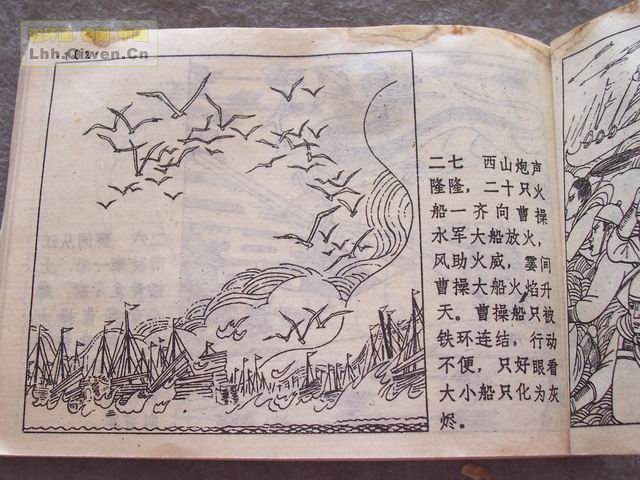 Lhh.Qiwen.Cn
102
二七 西山炮声
隆隆，二十只火
船一齐向曹操
水军大船放火，
风助火威，霎间
曹操大船火焰升
天。曹操船只被
铁环连结，行动
不便，只好眼看
大小船只化为灰
烬。